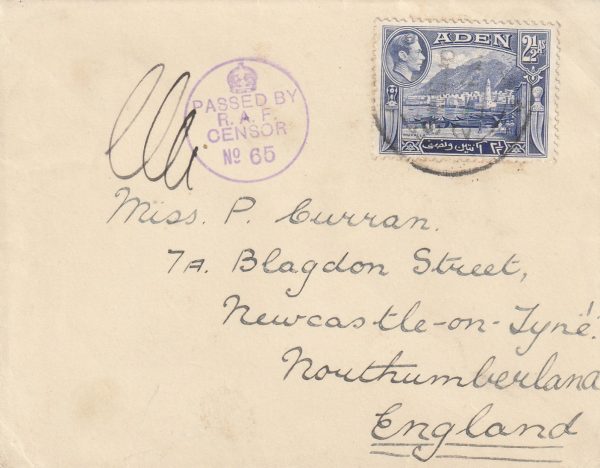 ADEN
2½ As
PASSED BY
R. A. F.
CENSOR
Nº 65
Miss. P. Curran.
7A. Blagdon Street,
Newcastle-on-Tyne.
Northumberland
England